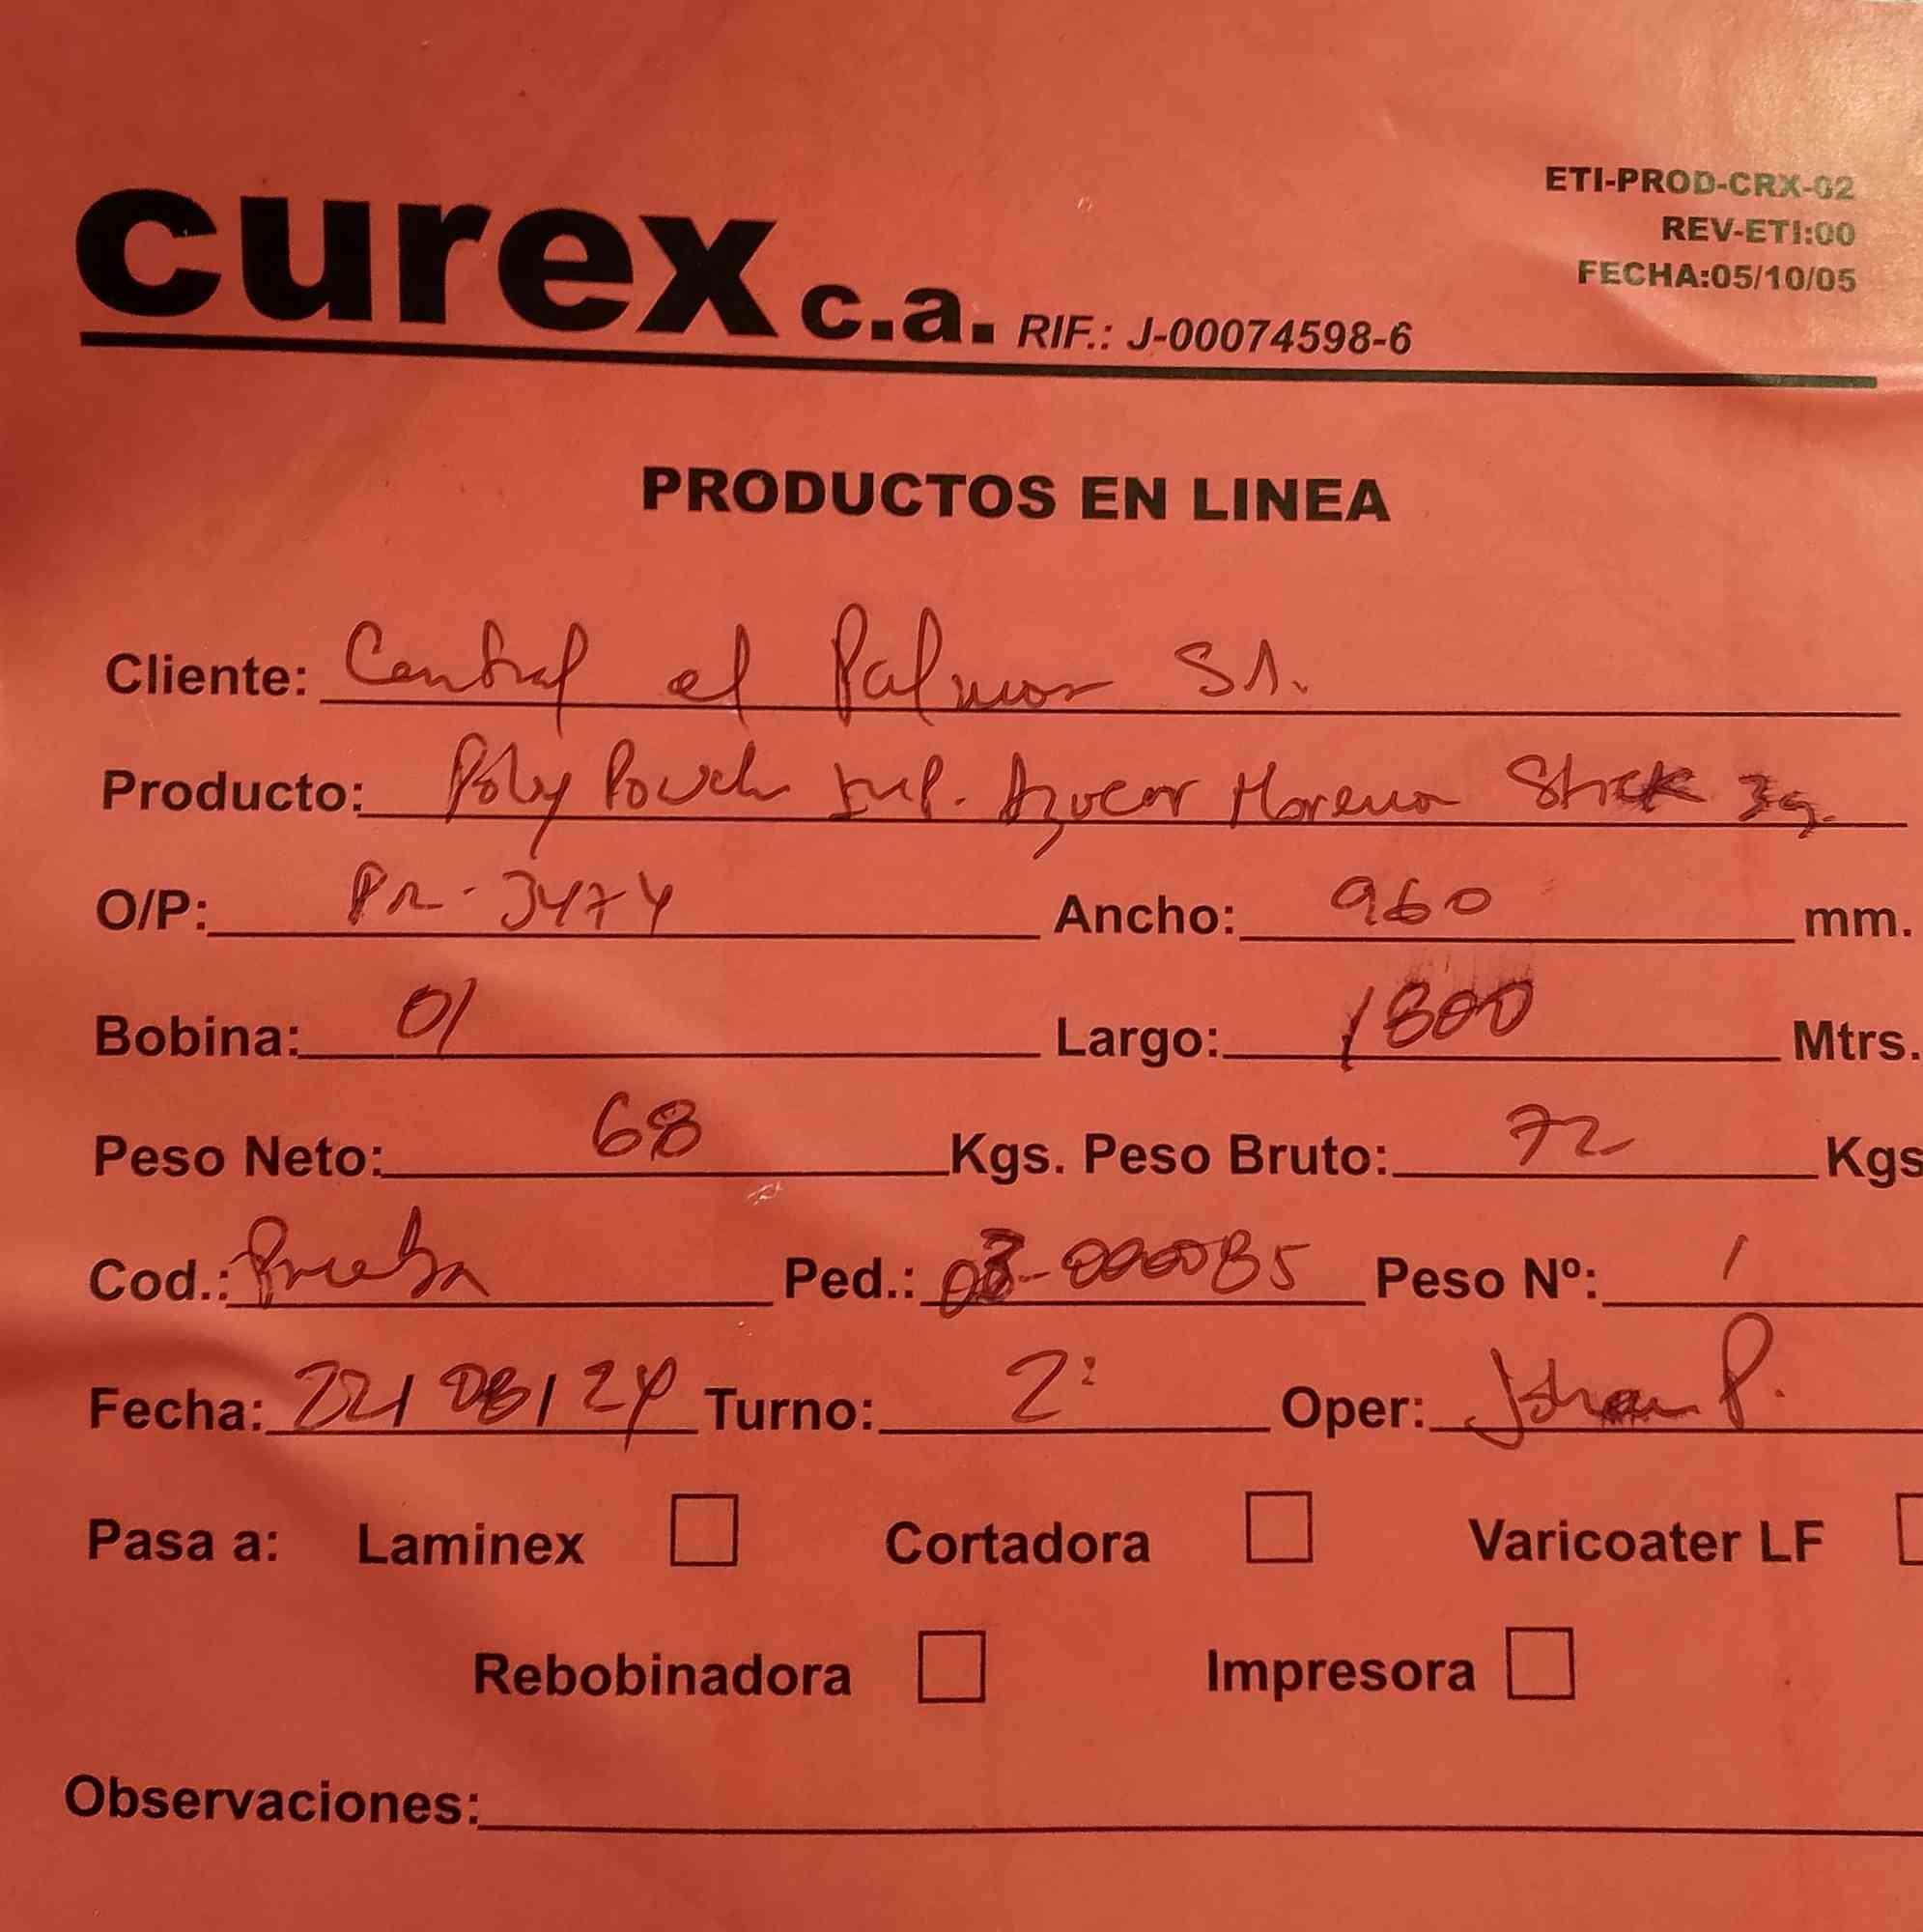 curex c.a. RIF.: J-00074598-6
ETI-PROD-CRX-02
REV-ETI:00
FECHA:05/10/05
PRODUCTOS EN LINEA
Cliente: Central el Palmar SA.
Producto: Poly Pouch Imp. Azucar Morena Stick 3g.
O/P: PR-3474 Ancho: 960 mm.
Bobina: 01 Largo: 1800 Mtrs.
Peso Neto: 68 Kgs. Peso Bruto: 72 Kgs
Cod.: Prueba Ped.: 03-000085 Peso Nº: 1
Fecha: 22/08/24 Turno: 2: Oper: Johan P.
Pasa a: Laminex Cortadora Varicoater LF
Rebobinadora Impresora
Observaciones: